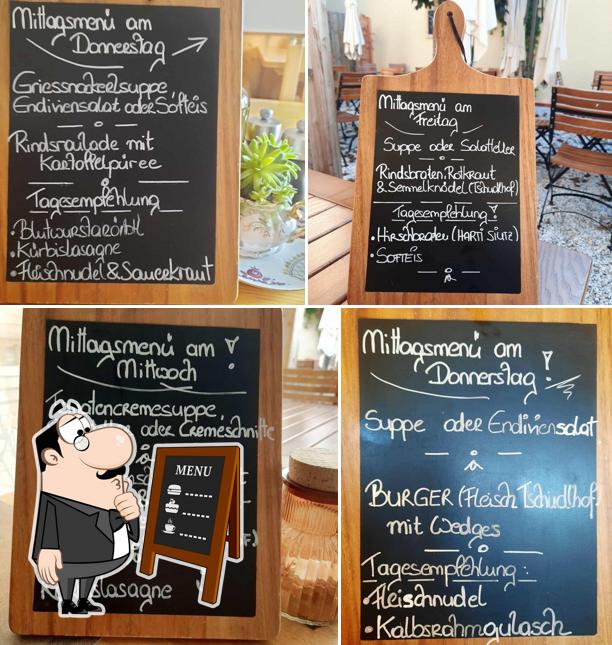 Mittagsmenü am
Donnerstag
Griessnockerlsuppe
Endiviensalat oder Softeis
Rindsroulade mit
Kartoffelpüree
Tagesempfehlung
• Blutwurstgröstl
• Kürbislasagne
• Fleischnudel & Sauerkraut
Mittagsmenü am
Freitag
Suppe oder Salatteller
Rindsbraten, Rotkraut
& Semmelknödel (Tschudlhof)
Tagesempfehlung!
• Hirschbraten (HARTI SIUTZ)
• SOFTEIS
Mittagsmenü am !
Mittwoch
oder Cremeschnitte
MENU
Mittagsmenü am
Donnerstag!
Suppe oder Endiviensalat
BURGER (Fleisch Tschudlhof)
mit Wedges
Tagesempfehlung:
• Fleischnudel
• Kalbsrahmgulasch